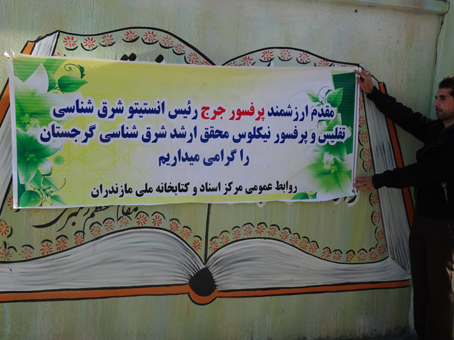 مقدم ارزشمند پرفسور جرج رئیس انستیتو شرق شناسی
تفلیس و پرفسور نیکلوس محقق ارشد شرق شناسی گرجستان
را گرامی میداریم
روابط عمومی مرکز اسناد و کتابخانه ملی مازندران